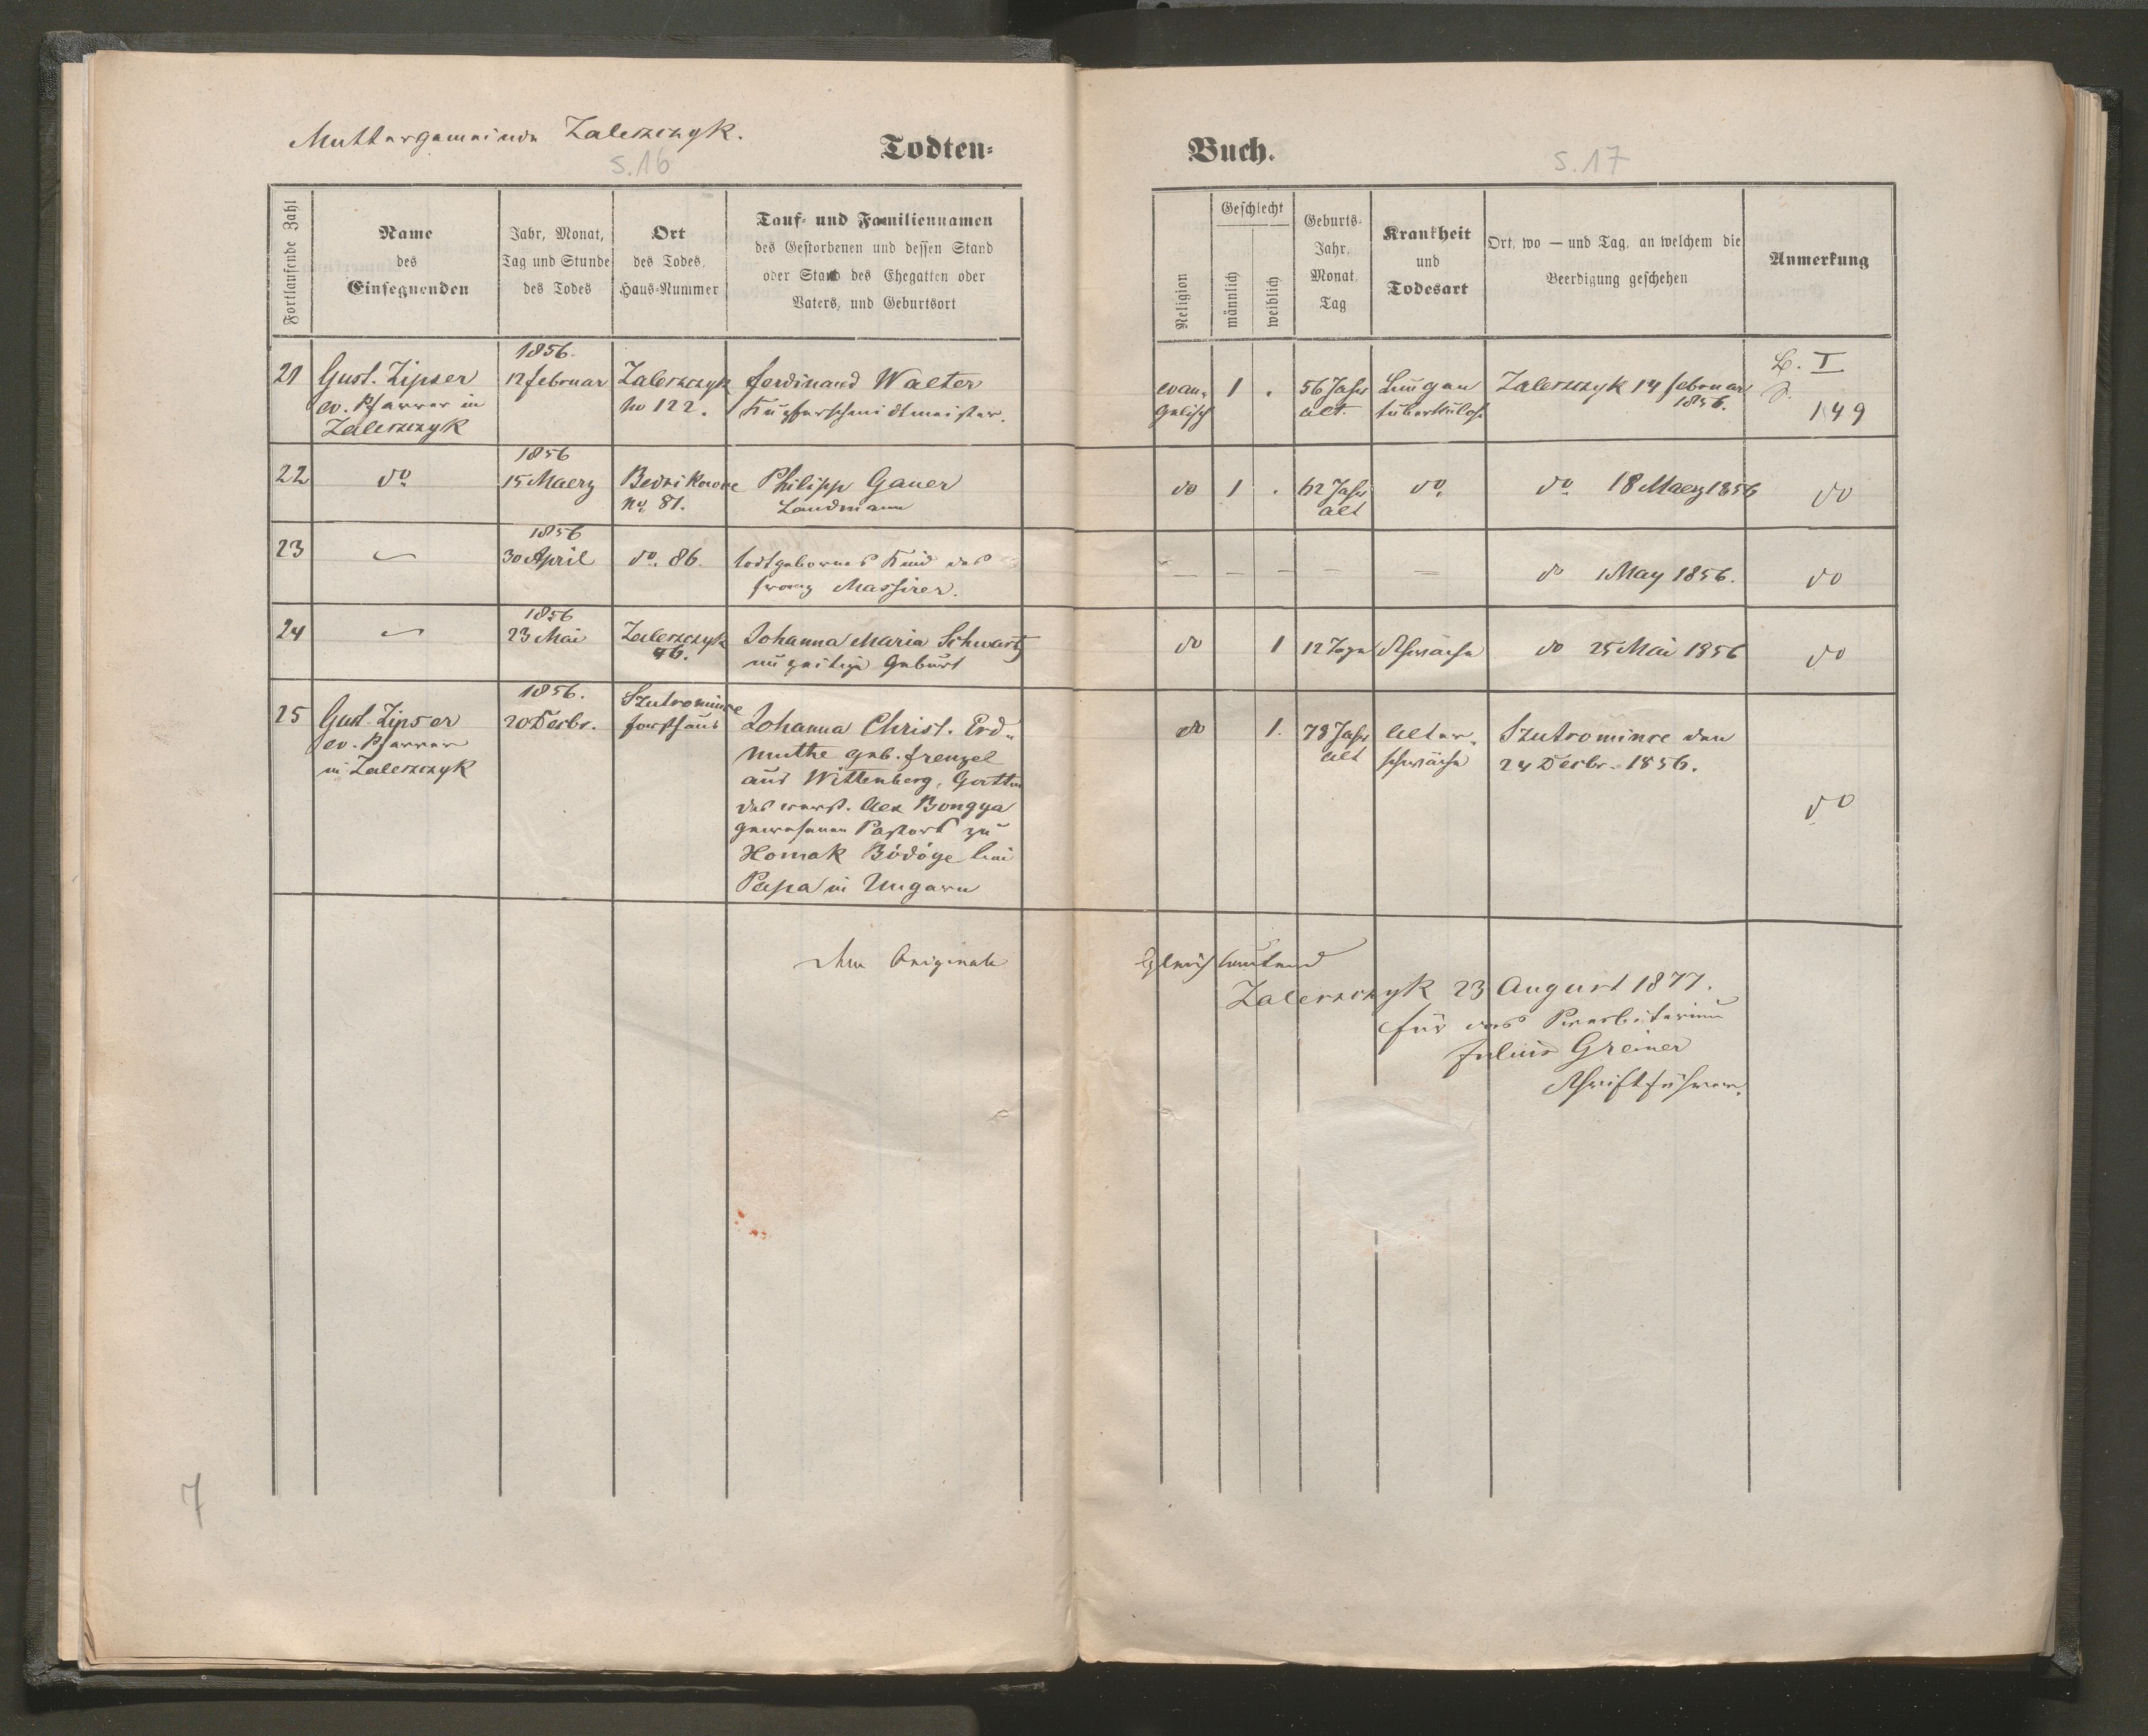 Muttergemeinde Zaleszczyk.
S. 16
Todten-
Fortlaufende Zahl
Name
des
Einsegnenden
Jahr, Monat,
Tag und Stunde
des Todes
Ort
des Todes,
Haus-Nummer
Tauf- und Familiennamen
des Gestorbenen und dessen Stand
oder Stand des Ehegatten oder
Vaters, und Geburtsort
21
Gust. Zipser
ev. Pfarrer in
Zaleszczyk
1856.
12 februar
Zaleszczyk
No 122.
Ferdinand Walter
Kupferschmidtmeister.
22
do
1856
15 Maerz
No. 81.
Philipp Gauer
Landmann
23
1856
30 April
do. 86.
todtgebornes Kind des
Franz Massirer.
24
1856
23 Mai
Zaleszczyk
46.
Johanna Maria Schwartz
unzeitige Geburt
25
Gust. Zipser
ev. Pfarrer
in Zaleszczyk
1856.
20 Decbr.
Szutromince
Forsthaus
Johanna Christ. Erd-
muthe geb. Frenzel
aus Wittenberg, Gattin
des verst. Alex Bongya
gewesenen Pastors zu
Homak Bödöge bei
Papa in Ungarn
dem Originale
7
Buch.
S. 17
Religion
Geschlecht
männlich
weiblich
Geburts-
Jahr,
Monat,
Tag
Krankheit
und
Todesart
Ort, wo — und Tag, an welchem die
Beerdigung geschehen
Anmerkung
evan-
gelisch
1
.
56 Jahr
alt.
Lungen
tuberkulose
Zaleszczyk 14 februar
1856.
B. I
S.
149
do
1
.
62 Jahr
alt
do.
do. 18 Maerz 1856
do
— — — — —
do 1 May 1856.
do
do
1
12 Tage
Schwäche
do 25 Mai 1856
do
do
1.
78 Jahr
alt
Alter-
schwäche
Szutromince den
24 Decbr. 1856.
do
gleichlautend
Zaleszczyk 23 August 1877.
Für das Presbiterium
Julius Greiner
Schriftführer.